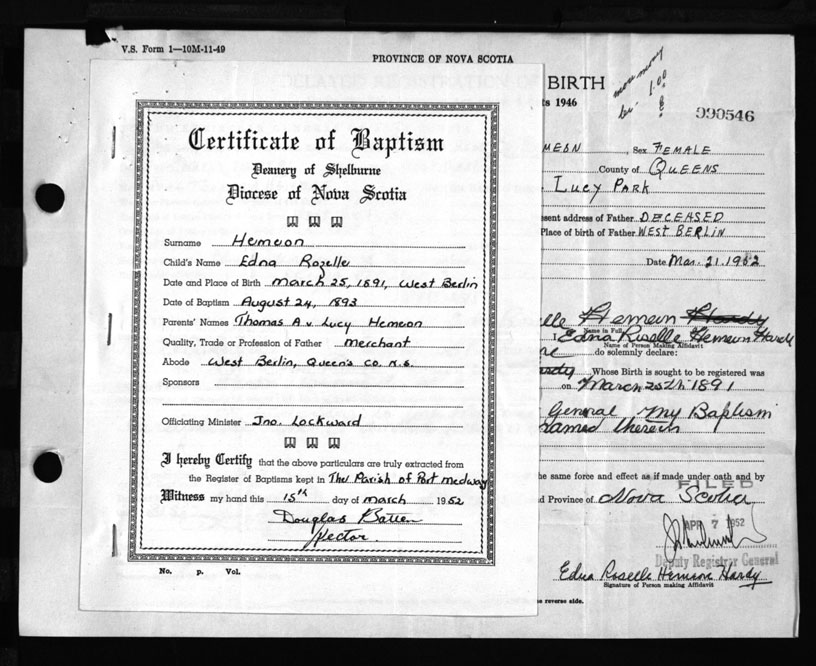 V.S. Form 1—10M-11-49
PROVINCE OF NOVA SCOTIA
BIRTH
1946
1.00
990546
Certificate of Baptism
Deanery of Shelburne
Diocese of Nova Scotia
Surname Hemeon
Child's Name Edna Rozelle
Date and Place of Birth March 25, 1891, West Berlin
Date of Baptism August 24, 1893
Parents' Names Thomas A v. Lucy Hemeon
Quality, Trade or Profession of Father merchant
Abode West Berlin, Queen's Co. N.S.
Sponsors
Officiating Minister Jno. Lockward
I hereby Certify that the above particulars are truly extracted from
the Register of Baptisms kept in The Parish of Port Medway
Witness my hand this 15th day of March 1952
Douglas
Rector
No. P. Vol.
MEON, Sex FEMALE
County of QUEENS
LUCY PARK
sent address of Father DECEASED
Place of birth of Father WEST BERLIN
Date Mar. 21. 1952
elle Hemeon Hardy
Name in Full
Edna Roselle Hemeon Hardy
Name of Person Making Affidavit
do solemnly declare:
ardy Whose Birth is sought to be registered was
on March 25th 1891
General My Baptism
named therein
he same force and effect as if made under oath and by
FILED
d Province of Nova Scotia
APR 7 1952
Deputy Registrar General
Edna Roselle Hemeon Hardy
Signature of Person making Affidavit
e reverse side.